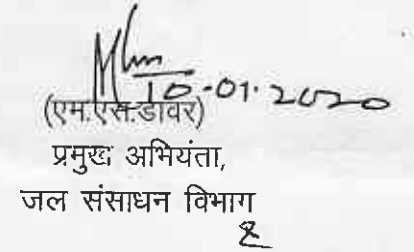 10-01-2020
(एम.एस.डावर)
प्रमुख अभियंता,
जल संसाधन विभाग